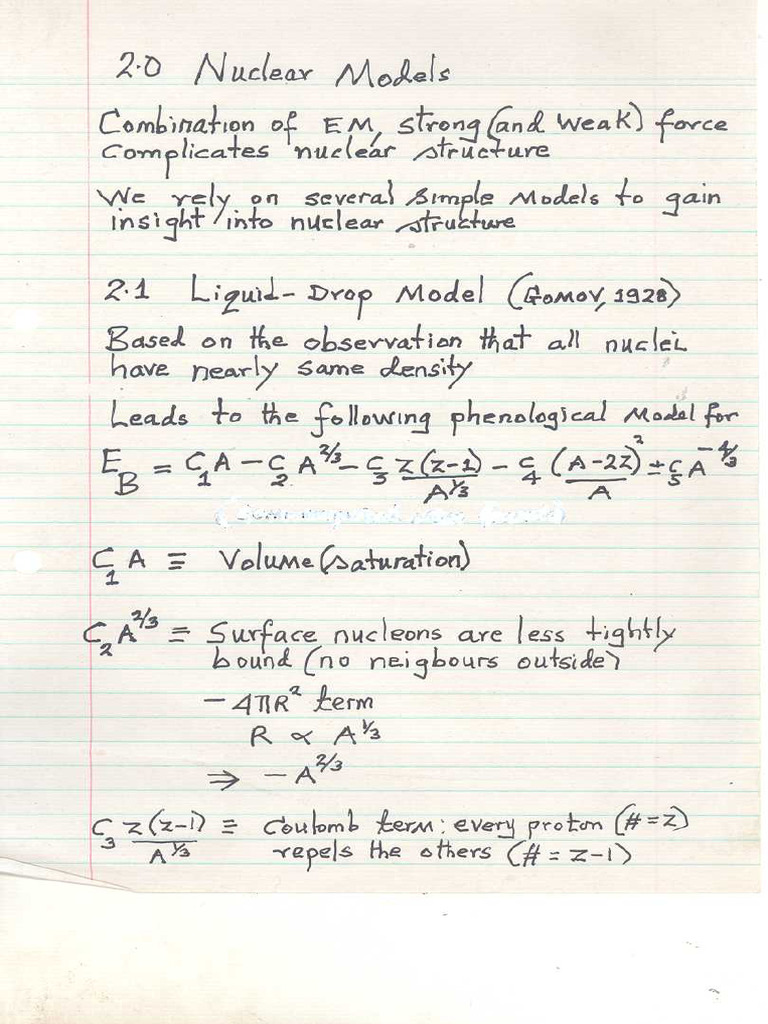 2.0 Nuclear Models
Combination of EM, strong (and weak) force
complicates nuclear structure
We rely on several simple models to gain
insight into nuclear structure
2.1 Liquid-Drop Model (Gomov, 1928)
Based on the observation that all nuclei
have nearly same density
Leads to the following phenological model for
E_B = C_1 A - C_2 A^{2/3} - C_3 Z(Z-1)/A^{1/3} - C_4 (A-2Z)^2/A ± C_5 A^{-4/3}
C_1 A ≡ Volume (saturation)
C_2 A^{2/3} ≡ Surface nucleons are less tightly
bound (no neighbours outside)
- 4πR^2 term
R ∝ A^{1/3}
⇒ - A^{2/3}
C_3 Z(Z-1)/A^{1/3} ≡ Coulomb term: every proton (#=Z)
repels the others (#=Z-1)